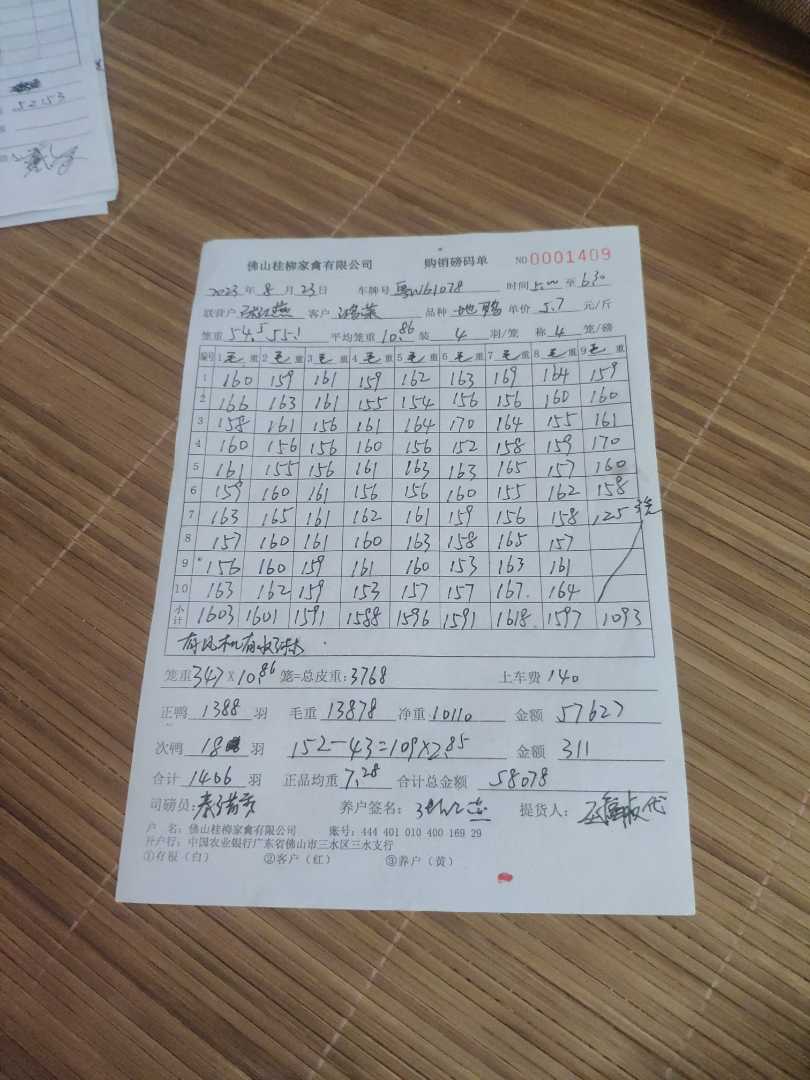 52153
佛山桂柳家禽有限公司 购销磅码单 NO 0001409
2023年 8月 23日 车牌号 粤W61078 时间 5:00 至 630
联营户 张江燕 客户 鸿荣 品种 地鸭 单价 5.7 元/斤
笼重 54.5 55.1 平均笼重 10.86 装 4 羽/笼 称 4 笼/磅
编号 1 毛 重 2 毛 重 3 毛 重 4 毛 重 5 毛 重 6 毛 重 7 毛 重 8 毛 重 9 毛 重
1 160 159 161 159 162 163 169 164 159
2 166 163 161 155 154 156 156 160 160
3 158 161 156 161 164 170 164 155 161
4 160 156 156 160 156 152 158 159 170
5 161 155 156 161 163 163 165 157 160
6 159 160 161 156 156 160 155 162 158
7 163 165 161 162 161 159 156 158 125 3笼
8 157 160 161 160 163 158 165 157
9 156 160 159 161 160 153 163 161
10 163 162 159 153 157 157 167 164
小计 1603 1601 1591 1588 1596 1591 1618 1597 1093
有风机有水
笼重 347 X 10.86 笼=总皮重: 3768 上车费 140
正鸭 1388 羽 毛重 13878 净重 10110 金额 57627
次鸭 18 羽 152-43=109×2.85 金额 311
合计 1406 羽 正品均重 7.28 合计总金额 58078
司磅员: 养户签名: 提货人:
户 名: 佛山桂柳家禽有限公司 账号: 444 401 010 400 169 29
开户行: 中国农业银行广东省佛山市三水区三水支行
①存根(白) ②客户(红) ③养户(黄)